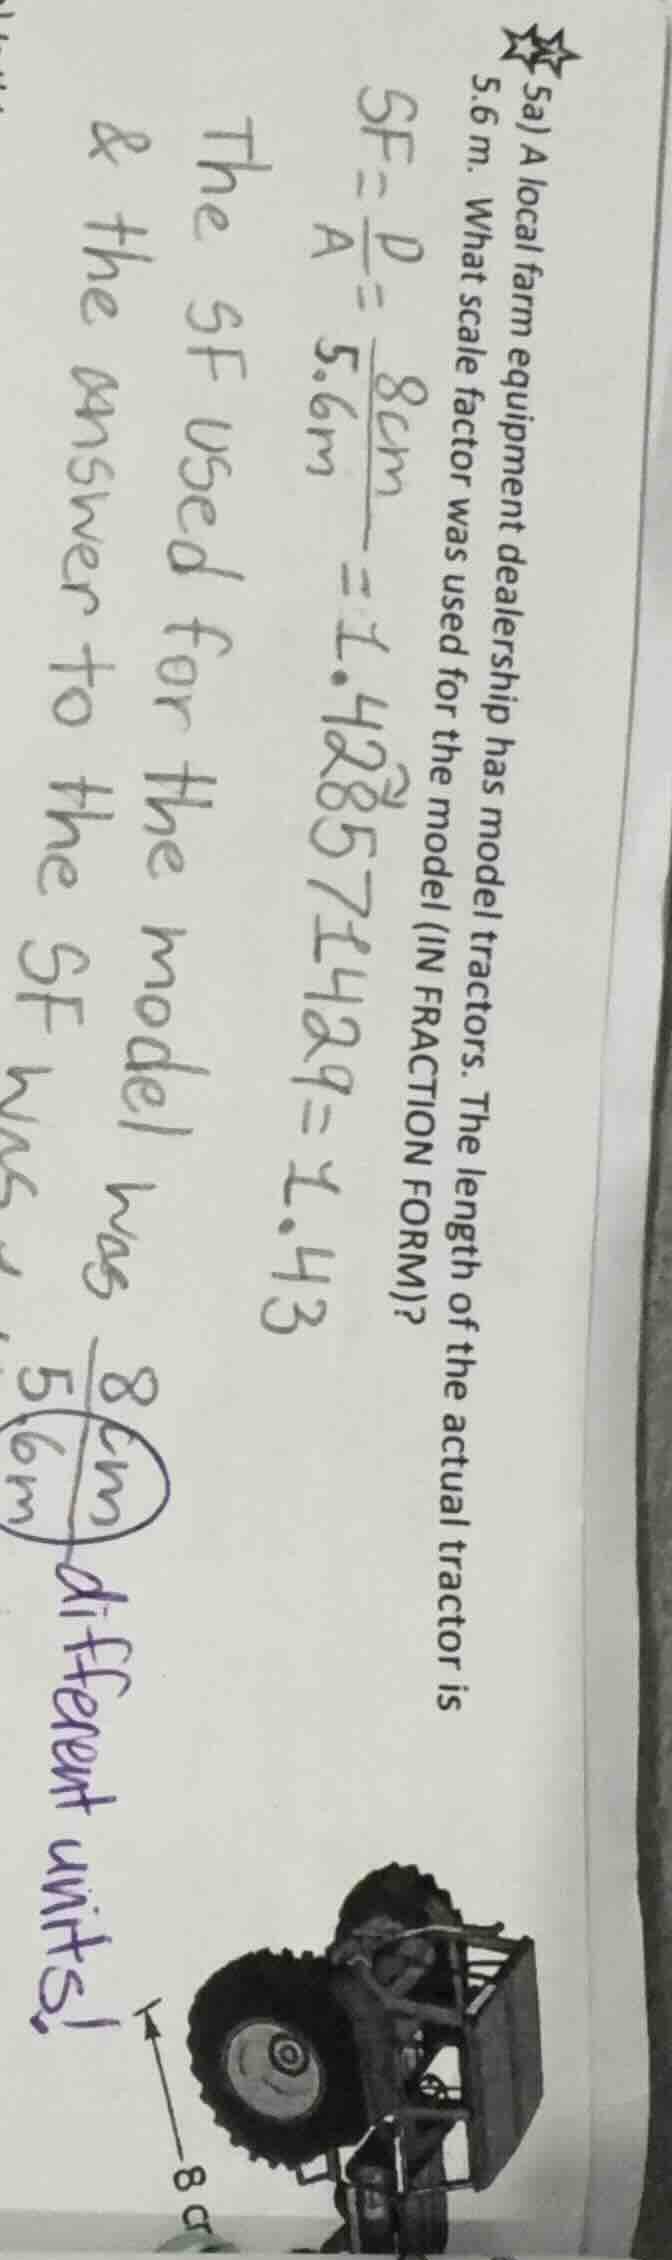 5a) A local farm equipment dealership has model tractors. The length of the actual tractor is
5.6 m. What scale factor was used for the model (IN FRACTION FORM)?
SF = D/A = 8cm/5.6m = 1.428571429 = 1.43
The SF used for the model was 8cm/5.6m different units!
& the answer to the SF was
8 c